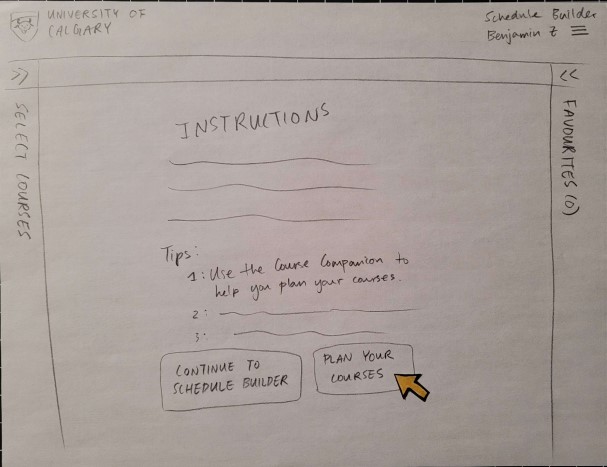 UNIVERSITY OF
CALGARY
Schedule Builder
Benjamin Z
>>
SELECT COURSES
<<
FAVOURITES (0)
INSTRUCTIONS
Tips:
1: Use the Course Companion to
help you plan your courses.
2:
3:
CONTINUE TO
SCHEDULE BUILDER
PLAN YOUR
COURSES